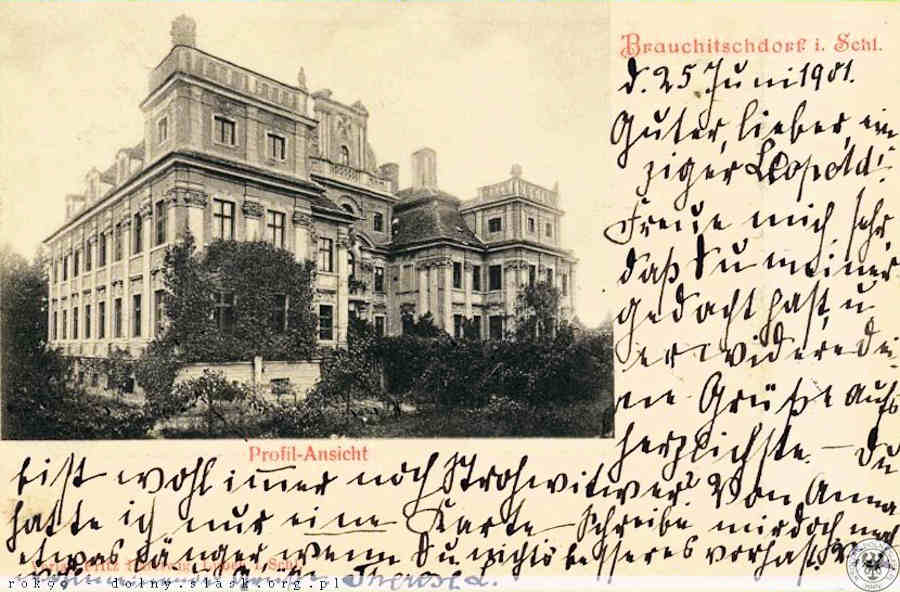 Brauchitschdorf i. Schl.
d. 25 Juni 1901.
Guter, lieber, ein
ziger Leopold!
Freue mich sehr,
daß Du meiner
gedacht hast, u
erwidere dei
ne Grüße aufs
herzlichste. – Du
Profil-Ansicht
bist wohl immer noch Strohwitwer? Von Anna
hatte ich nur eine Karte – Schreibe mir doch mal
etwas länger, wenn Du nichts besseres vorhast.
Theresa.
rokyq dolny.slask.org.pl